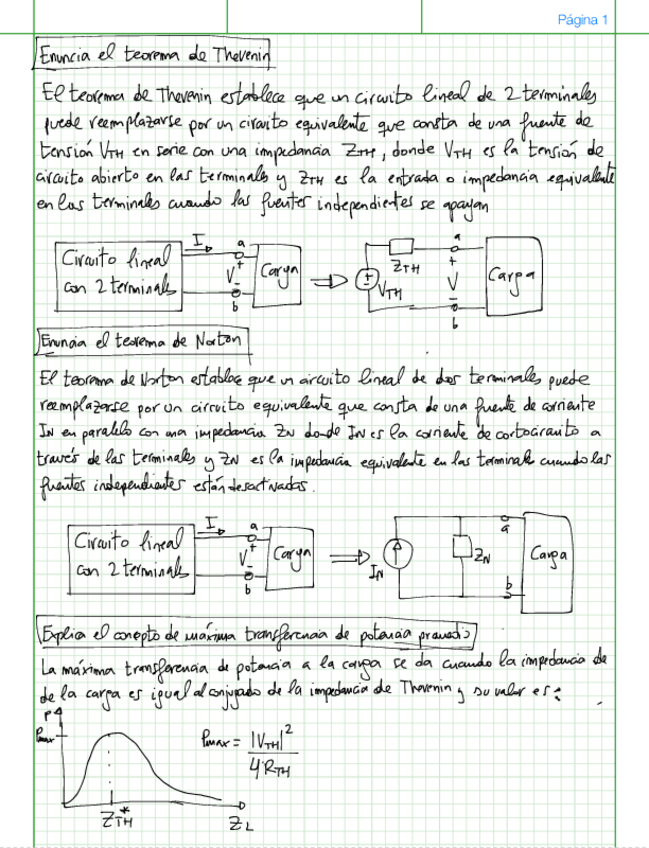 Página 1
Enuncia el teorema de Thevenin
El teorema de Thevenin establece que un circuito lineal de 2 terminales
puede reemplazarse por un circuito equivalente que consta de una fuente de
tensión VTH en serie con una impedancia ZTH, donde VTH es la tensión de
circuito abierto en las terminales y ZTH es la entrada o impedancia equivalente
en las terminales cuando las fuentes independientes se apagan
Circuito lineal
con 2 terminales
I
a
+
V
-
b
Carga
ZTH
VTH
a
+
V
-
b
Carga
Enuncia el teorema de Norton
El teorema de Norton establece que un circuito lineal de dos terminales puede
reemplazarse por un circuito equivalente que consta de una fuente de corriente
IN en paralelo con una impedancia ZN donde IN es la corriente de cortocircuito a
través de las terminales y ZN es la impedancia equivalente en las terminales cuando las
fuentes independientes están desactivadas.
Circuito lineal
con 2 terminales
I
a
+
V
-
b
Carga
IN
ZN
a
b
Carga
Explica el concepto de máxima transferencia de potencia promedio
La máxima transferencia de potencia a la carga se da cuando la impedancia de
de la carga es igual al conjugado de la impedancia de Thevenin y su valor es:
P
Pmax
ZTH*
ZL
Pmax = |VTH|²
4·RTH